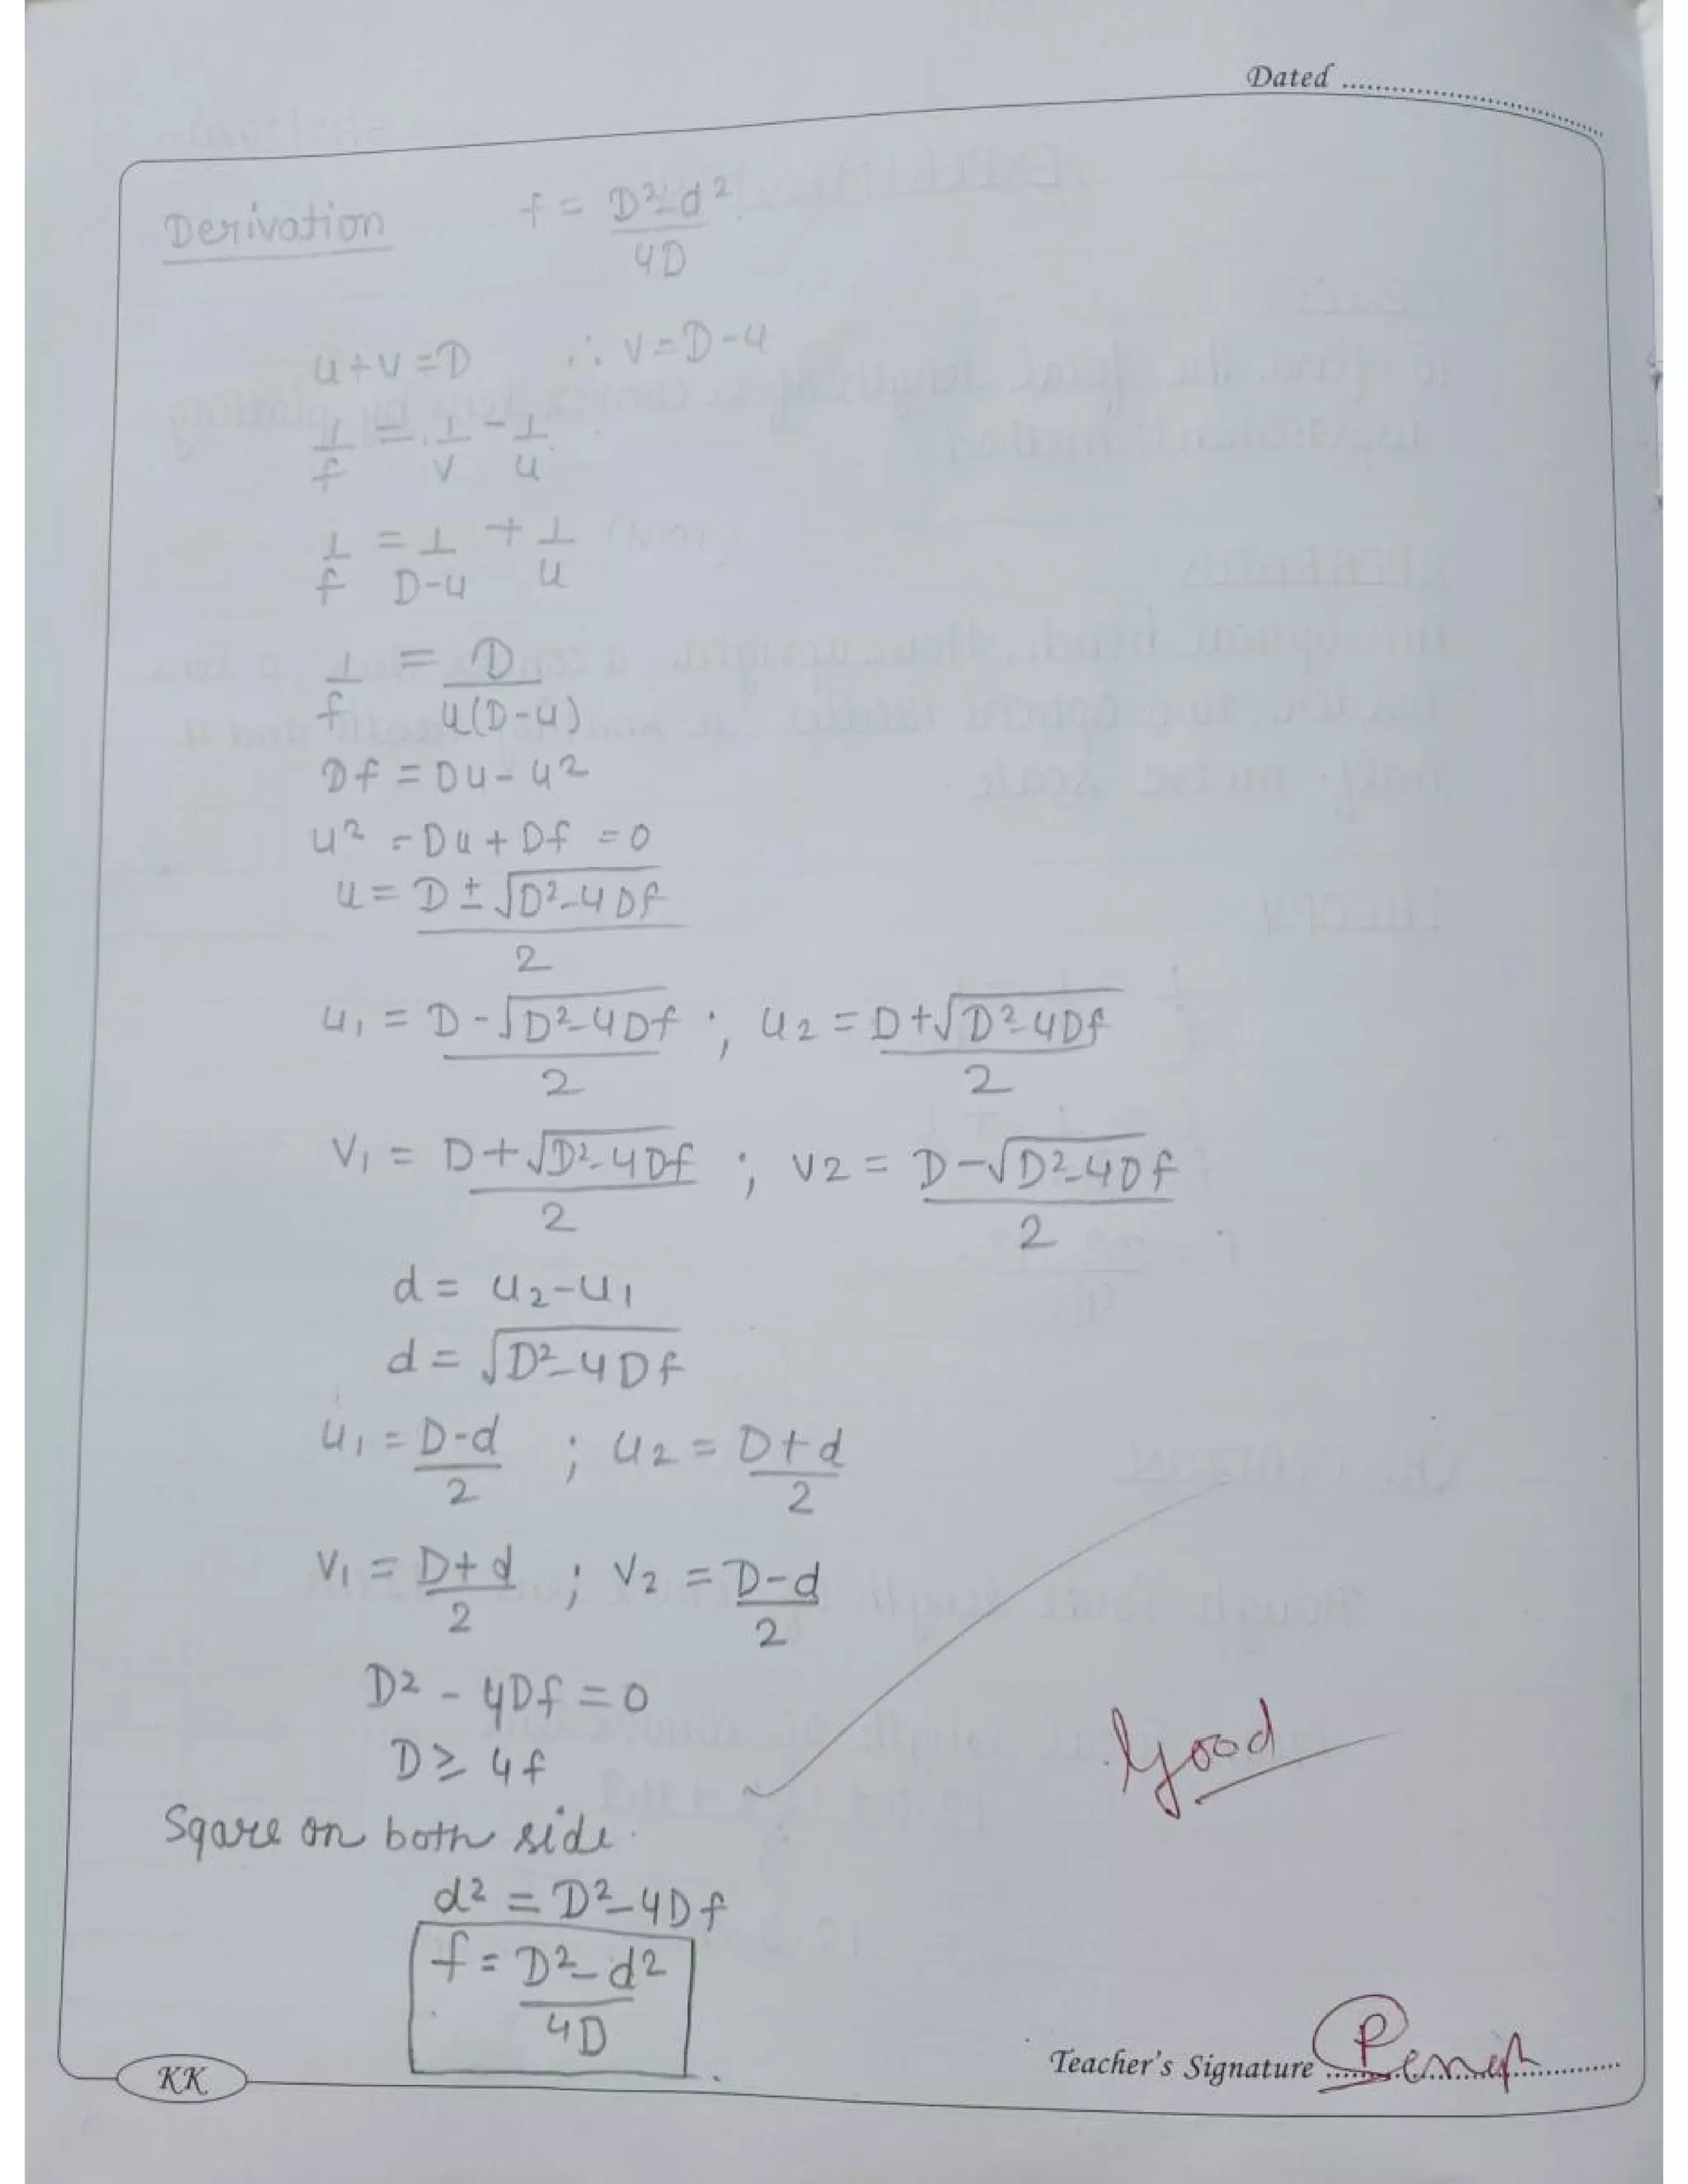 Dated
Derivation f = D²-d² / 4D
u+v=D ∴ v=D-u
1/f = 1/v - 1/u
1/f = 1/D-u + 1/u
1/f = D / u(D-u)
Df = Du - u²
u² - Du + Df = 0
u = D ± √D²-4Df / 2
u₁ = D - √D²-4Df / 2 ; u₂ = D + √D²-4Df / 2
v₁ = D + √D²-4Df / 2 ; v2 = D - √D²-4Df / 2
d = u₂-u₁
d = √D²-4Df
u₁ = D-d / 2 ; u₂ = D+d / 2
v₁ = D+d / 2 ; v₂ = D-d / 2
D² - 4Df = 0
D ≥ 4f
Sqare on both side.
d² = D²-4Df
f = D²-d² / 4D
Good
Teacher's Signature
KK